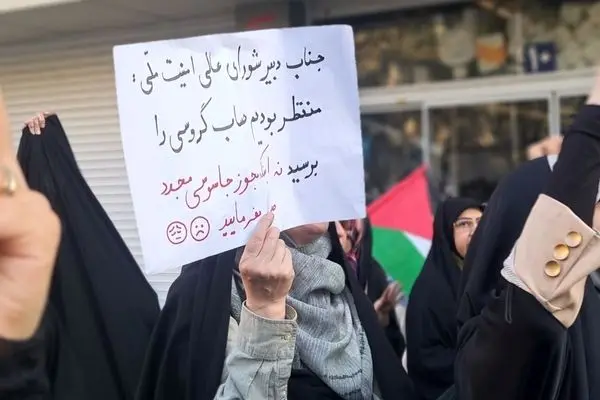 جناب دبیر شورای عالی امنیت ملّی:
منتظر بودیم حساب گروسی را
برسید نه اینکه مجوز جاسوسی مجدد
بفرمایید